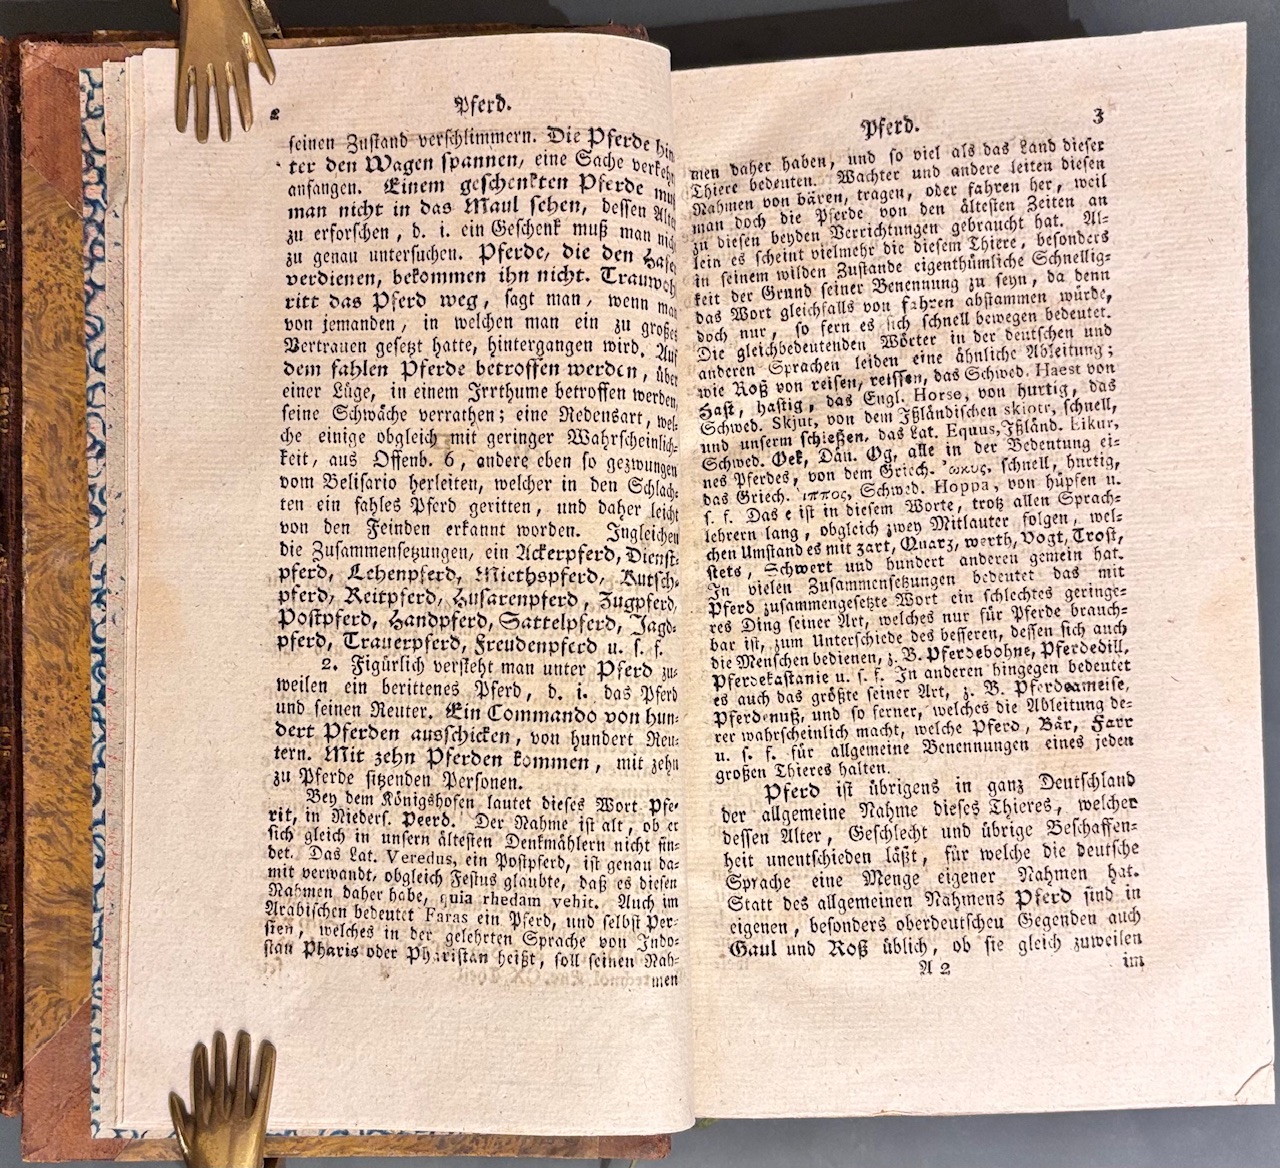 2
Pferd.
seinen Zustand verschlimmern. Die Pferde hin
ter den Wagen spannen, eine Sache verkehr
anfangen. Einem geschenkten Pferde muß
man nicht in das Maul sehen, dessen Alter
zu erforschen, d. i. ein Geschenk muß man nich
zu genau untersuchen. Pferde, die den Hafe
verdienen, bekommen ihn nicht. Trauwoh
ritt das Pferd weg, sagt man, wenn man
von jemanden, in welchen man ein zu großes
Vertrauen gesetzt hatte, hintergangen wird. Auf
dem fahlen Pferde betroffen werden, über
einer Lüge, in einem Irrthume betroffen werden,
seine Schwäche verrathen; eine Redensart, wel-
che einige obgleich mit geringer Wahrscheinlich-
keit, aus Offenb. 6, andere eben so gezwungen
vom Belisario herleiten, welcher in den Schlach-
ten ein fahles Pferd geritten, und daher leicht
von den Feinden erkannt worden. Ingleichen
die Zusammensetzungen, ein Ackerpferd, Dienst-
pferd, Lehenpferd, Miethspferd, Kutsch-
pferd, Reitpferd, Husarenpferd, Zugpferd,
Postpferd, Handpferd, Sattelpferd, Jagd-
pferd, Trauerpferd, Freudenpferd u. s. f.
2. Figürlich versteht man unter Pferd zu-
weilen ein berittenes Pferd, d. i. das Pferd
und seinen Reuter. Ein Commando von hun-
dert Pferden ausschicken, von hundert Reu-
tern. Mit zehn Pferden kommen, mit zehn
zu Pferde sitzenden Personen.
Bey dem Königshofen lautet dieses Wort Pfe-
rit, in Nieders. Peerd. Der Nahme ist alt, ob er
sich gleich in unsern ältesten Denkmählern nicht fin-
det. Das Lat. Veredus, ein Postpferd, ist genau da-
mit verwandt, obgleich Festus glaubte, daß es diesen
Nahmen daher habe, quia rhedam vehit. Auch im
Arabischen bedeutet Faras ein Pferd, und selbst Per-
sien, welches in der gelehrten Sprache von Indo-
stan Pharis oder Pharistan heißt, soll seinen Nah-
men
Pferd.
3
men daher haben, und so viel als das Land dieser
Thiere bedeuten. Wachter und andere leiten diesen
Nahmen von bären, tragen, oder fahren her, weil
man doch die Pferde von den ältesten Zeiten an
zu diesen beyden Verrichtungen gebraucht hat. Al-
lein es scheint vielmehr die diesem Thiere, besonders
in seinem wilden Zustande eigenthümliche Schnellig-
keit der Grund seiner Benennung zu seyn, da denn
das Wort gleichfalls von fahren abstammen würde,
doch nur, so fern es sich schnell bewegen bedeutet.
Die gleichbedeutenden Wörter in der deutschen und
anderen Sprachen leiden eine ähnliche Ableitung;
wie Roß von reisen, reissen, das Schwed. Haest von
Hast, hastig, das Engl. Horse, von hurtig, das
Schwed. Skjut, von dem Ißländischen skiotr, schnell,
und unserm schießen, das Lat. Equus, Ißländ. Eikur,
Schwed. Oek, Dän. Og, alle in der Bedeutung ei-
nes Pferdes, von dem Griech. ὠκυς, schnell, hurtig,
das Griech. ἱππος, Schwed. Hoppa, von hüpfen u.
s. f. Das e ist in diesem Worte, trotz allen Sprach-
lehrern lang, obgleich zwey Mitlauter folgen, wel-
chen Umstand es mit zart, Quarz, werth, Vogt, Trost,
stets, Schwert und hundert anderen gemein hat.
In vielen Zusammensetzungen bedeutet das mit
Pferd zusammengesetzte Wort ein schlechtes geringe-
res Ding seiner Art, welches nur für Pferde brauch-
bar ist, zum Unterschiede des besseren, dessen sich auch
die Menschen bedienen, z. B. Pferdebohne, Pferdedill,
Pferdekastanie u. s. f. In anderen hingegen bedeutet
es auch das größte seiner Art, z. B. Pferdeameise,
Pferdenuß, und so ferner, welches die Ableitung de-
rer wahrscheinlich macht, welche Pferd, Bär, Farr
u. s. f. für allgemeine Benennungen eines jeden
großen Thieres halten.
Pferd ist übrigens in ganz Deutschland
der allgemeine Nahme dieses Thieres, welcher
dessen Alter, Geschlecht und übrige Beschaffen-
heit unentschieden läßt, für welche die deutsche
Sprache eine Menge eigener Nahmen hat.
Statt des allgemeinen Nahmens Pferd sind in
eigenen, besonders oberdeutscheu Gegenden auch
Gaul und Roß üblich, ob sie gleich zuweilen
A 2
im